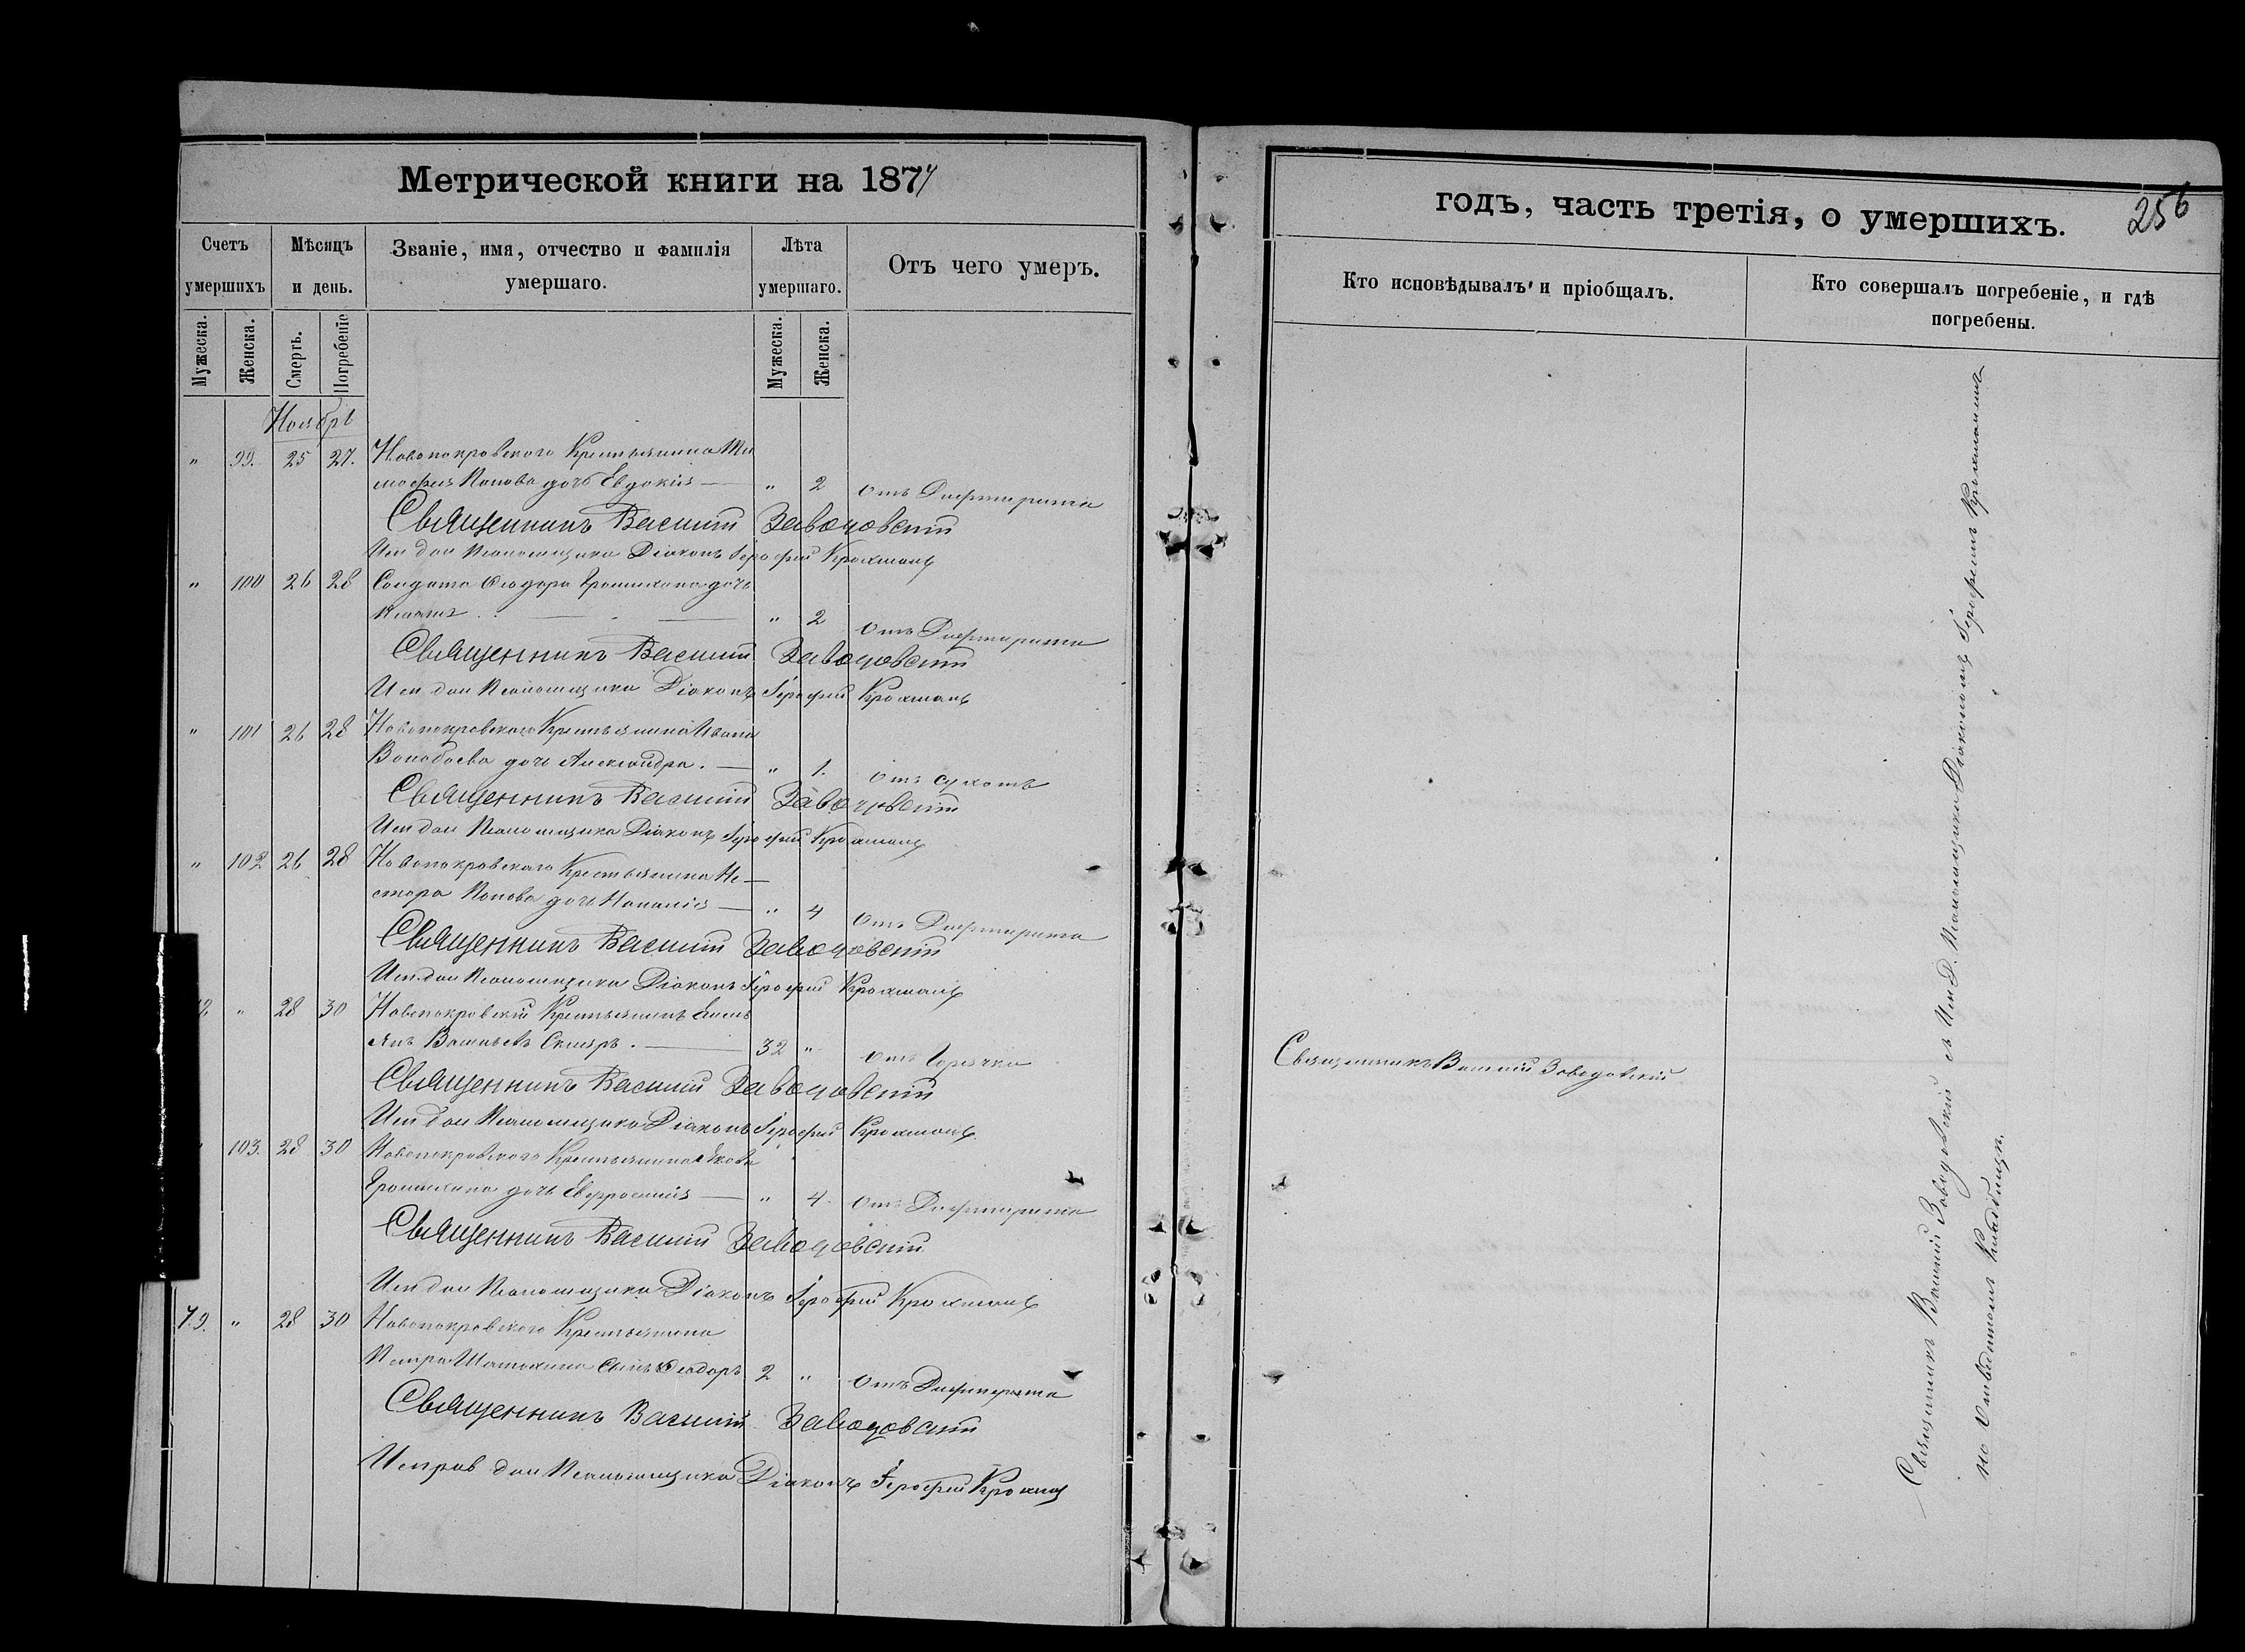 Метрической книги на 1874
годъ, часть третія, о умершихъ.
256
Счетъ умершихъ
Мѣсяцъ и день.
Званіе, имя, отчество и фамилія умершаго.
Лѣта умершаго.
Отъ чего умеръ.
Кто исповѣдывалъ и пріобщалъ.
Кто совершалъ погребеніе, и гдѣ погребены.
Мужеска.
Женска.
Смерть.
Погребеніе
Мужеска.
Женска.
Ноябрь
" 99. 25 27. Новопокровского Крестьянина Ти
мофея Попова дочь Евдокія — " 2 отъ Дифтерита
Священникъ Василій Заводовскій
Исп дол Псаломщика Діаконъ Іерофей Крохмаль
" 100 26 28 Солдата Ѳеодора дочь
" 2 отъ Дифтерита
Священникъ Василій Заводовскій
Исп дол Псаломщика Діаконъ Іерофей Крохмаль
" 101 26 28 Новопокровского Крестьянина Ивана
дочь Александра. — " 1. отъ сухотъ
Священникъ Василій Заводовскій
Исп дол Псаломщика Діаконъ Іерофей Крохмаль
" 102 26 28 Новопокровского Крестьянина Не—
стора Попова дочь Наталія — " 4 отъ Дифтерита
Священникъ Василій Заводовскій
Исп дол Псаломщика Діаконъ Іерофей Крохмаль
" 28 30 Новопокровскій Крестьянинъ Емель
янъ Васильевъ . — 32 " отъ Горячки
Священникъ Василій Заводовскій
Священникъ Василій Заводовскій
Исп дол Псаломщика Діаконъ Іерофей Крохмаль
103. 28 30 Новопокровского Крестьянина Якова
дочь Евфросинія — " 4. отъ Дифтерита
Священникъ Василій Заводовскій
Исп дол Псаломщика Діаконъ Іерофей Крохмаль
79. " 28 30 Новопокровского Крестьянина
Петра сынъ Ѳеодоръ 2 " отъ Дифтерита
Священникъ Василій Заводовскій
Исправ дол Псаломщика Діаконъ Іерофей
Священникъ Василій Заводовскій съ Исп Д. Псаломщика Діакономъ Іерофеемъ Крохмалемъ
на Кладбищѣ.